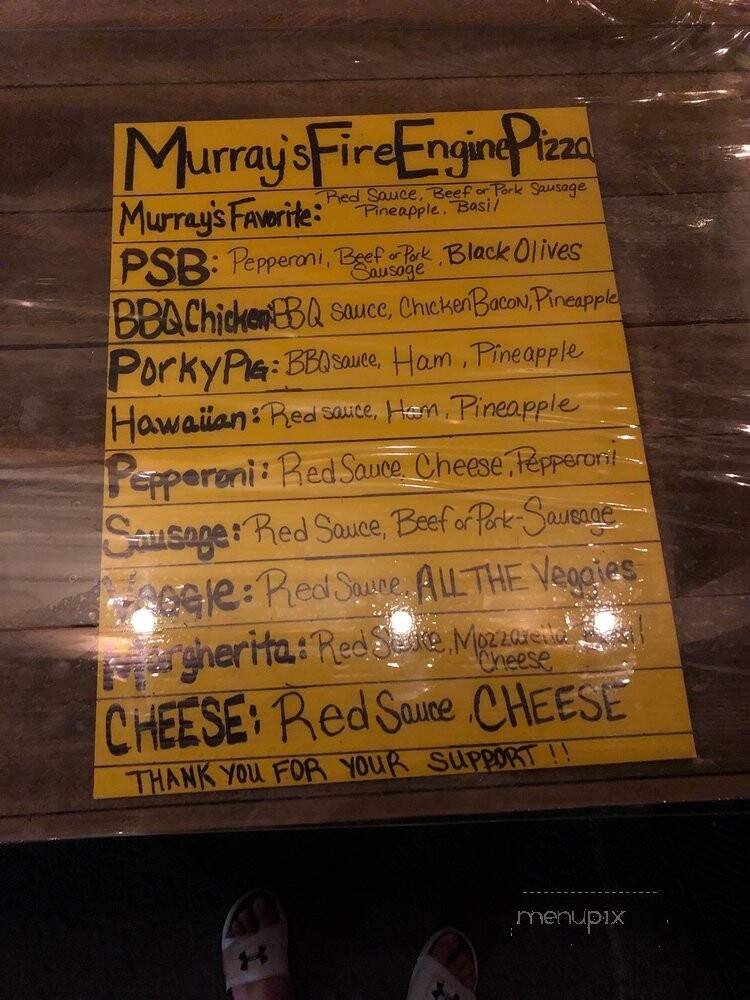 Murray's Fire Engine Pizza
Murray's Favorite: Red Sauce, Beef or Pork Sausage
Pineapple, Basil
PSB: Pepperoni, Beef or Pork Sausage, Black Olives
BBQ Chicken: BBQ sauce, Chicken Bacon, Pineapple
Porky Pig: BBQ sauce, Ham, Pineapple
Hawaiian: Red sauce, Ham, Pineapple
Pepperoni: Red Sauce, Cheese, Pepperoni
Sausage: Red Sauce, Beef or Pork-Sausage
Veggie: Red Sauce, ALL THE Veggies
Margherita: Red Sauce, Mozzarella Cheese Basil
CHEESE: Red Sauce, CHEESE
THANK YOU FOR YOUR SUPPORT!!
menupix